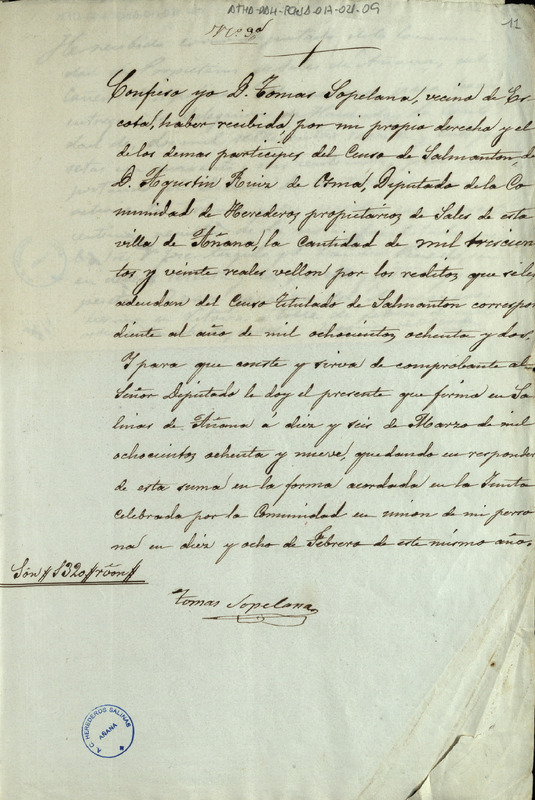 ATHA-DAH-FCNS-014-021-09
11
N.º 9º
Confieso yo D. Tomas Sopelana, vecino de Es-
cota, haber recibido, por mi propio derecho y el
de los demas participes del Censo de Salmanton, de
D. Agustin Ruiz de Osma, Diputado de la Co-
munidad de Herederos propietarios de Sales de esta
villa de Añana, la cantidad de mil trescien-
tos y veinte reales vellon por los reditos que se le
adeudan del Censo titulado de Salmanton correspon
diente al año de mil ochocientos ochenta y dos.
Y para que conste y sirva de comprobante al
Señor Diputado le doy el presente que firmo en Sa-
linas de Añana á diez y seis de Marzo de mil
ochocientos ochenta y nueve, quedando en responder
de esta suma en la forma acordada en la Junta
celebrada por la Comunidad en union de mi perso
na en diez y ocho de Febrero de este mismo año.
Són # 1320 # rvon #
Tomas Sopelana
A. C. HEREDEROS SALINAS
AÑANA